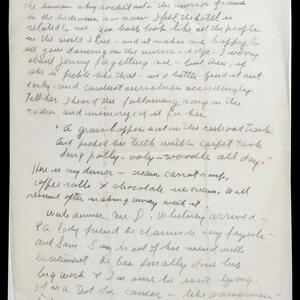 the human sky rocket into the mirror frame
in the bedroom so now I feel the hotel is
related to me. You both look like all the people
in the world I love - and it makes me happy to
see you dancing on the mirror - edge. I worry
about Jenny forgetting me - but then, if
she is fickle like that - we'd better find it out
early - and conduct ourselves accordingly.
Tell her I heard the following song on the
radio and memorized it for her.
"A grasshopper sat on the railroad track
and picked his teeth with a carpet tack
Sing polly - woly - woodle all day."
Here is my dinner - cream carrot soup,
coffee rolls & chocolate ice cream. Will
resume after making away with it.
With dinner, Mr. S. Whitney arrived -
& a lady friend he claims is very
and Sam. Sam is out of his mind with
excitement. He has finally done his
big work & I'm sure he isn't lying.
It is a test for cancer - like Wasserman